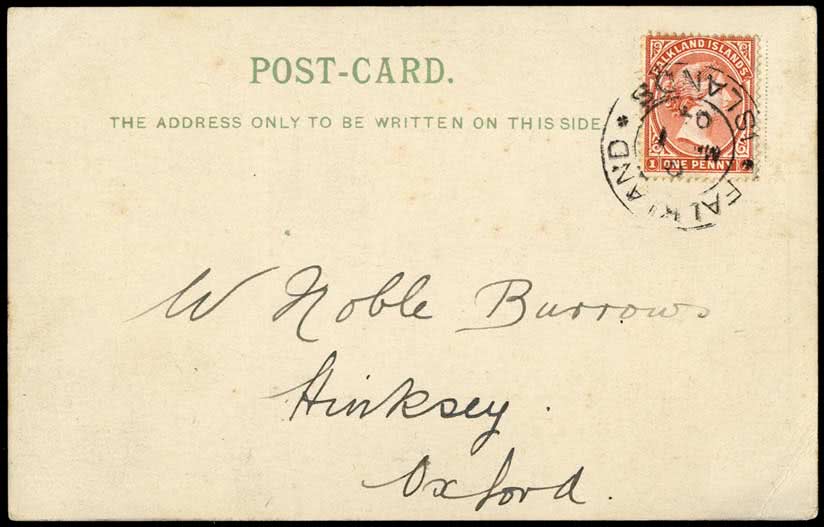 POST-CARD.
THE ADDRESS ONLY TO BE WRITTEN ON THIS SIDE.
FALKLAND ISLANDS
1 ONE PENNY
FALKLAND * ISLANDS *
W Noble Burrows
Hinksey.
Oxford.